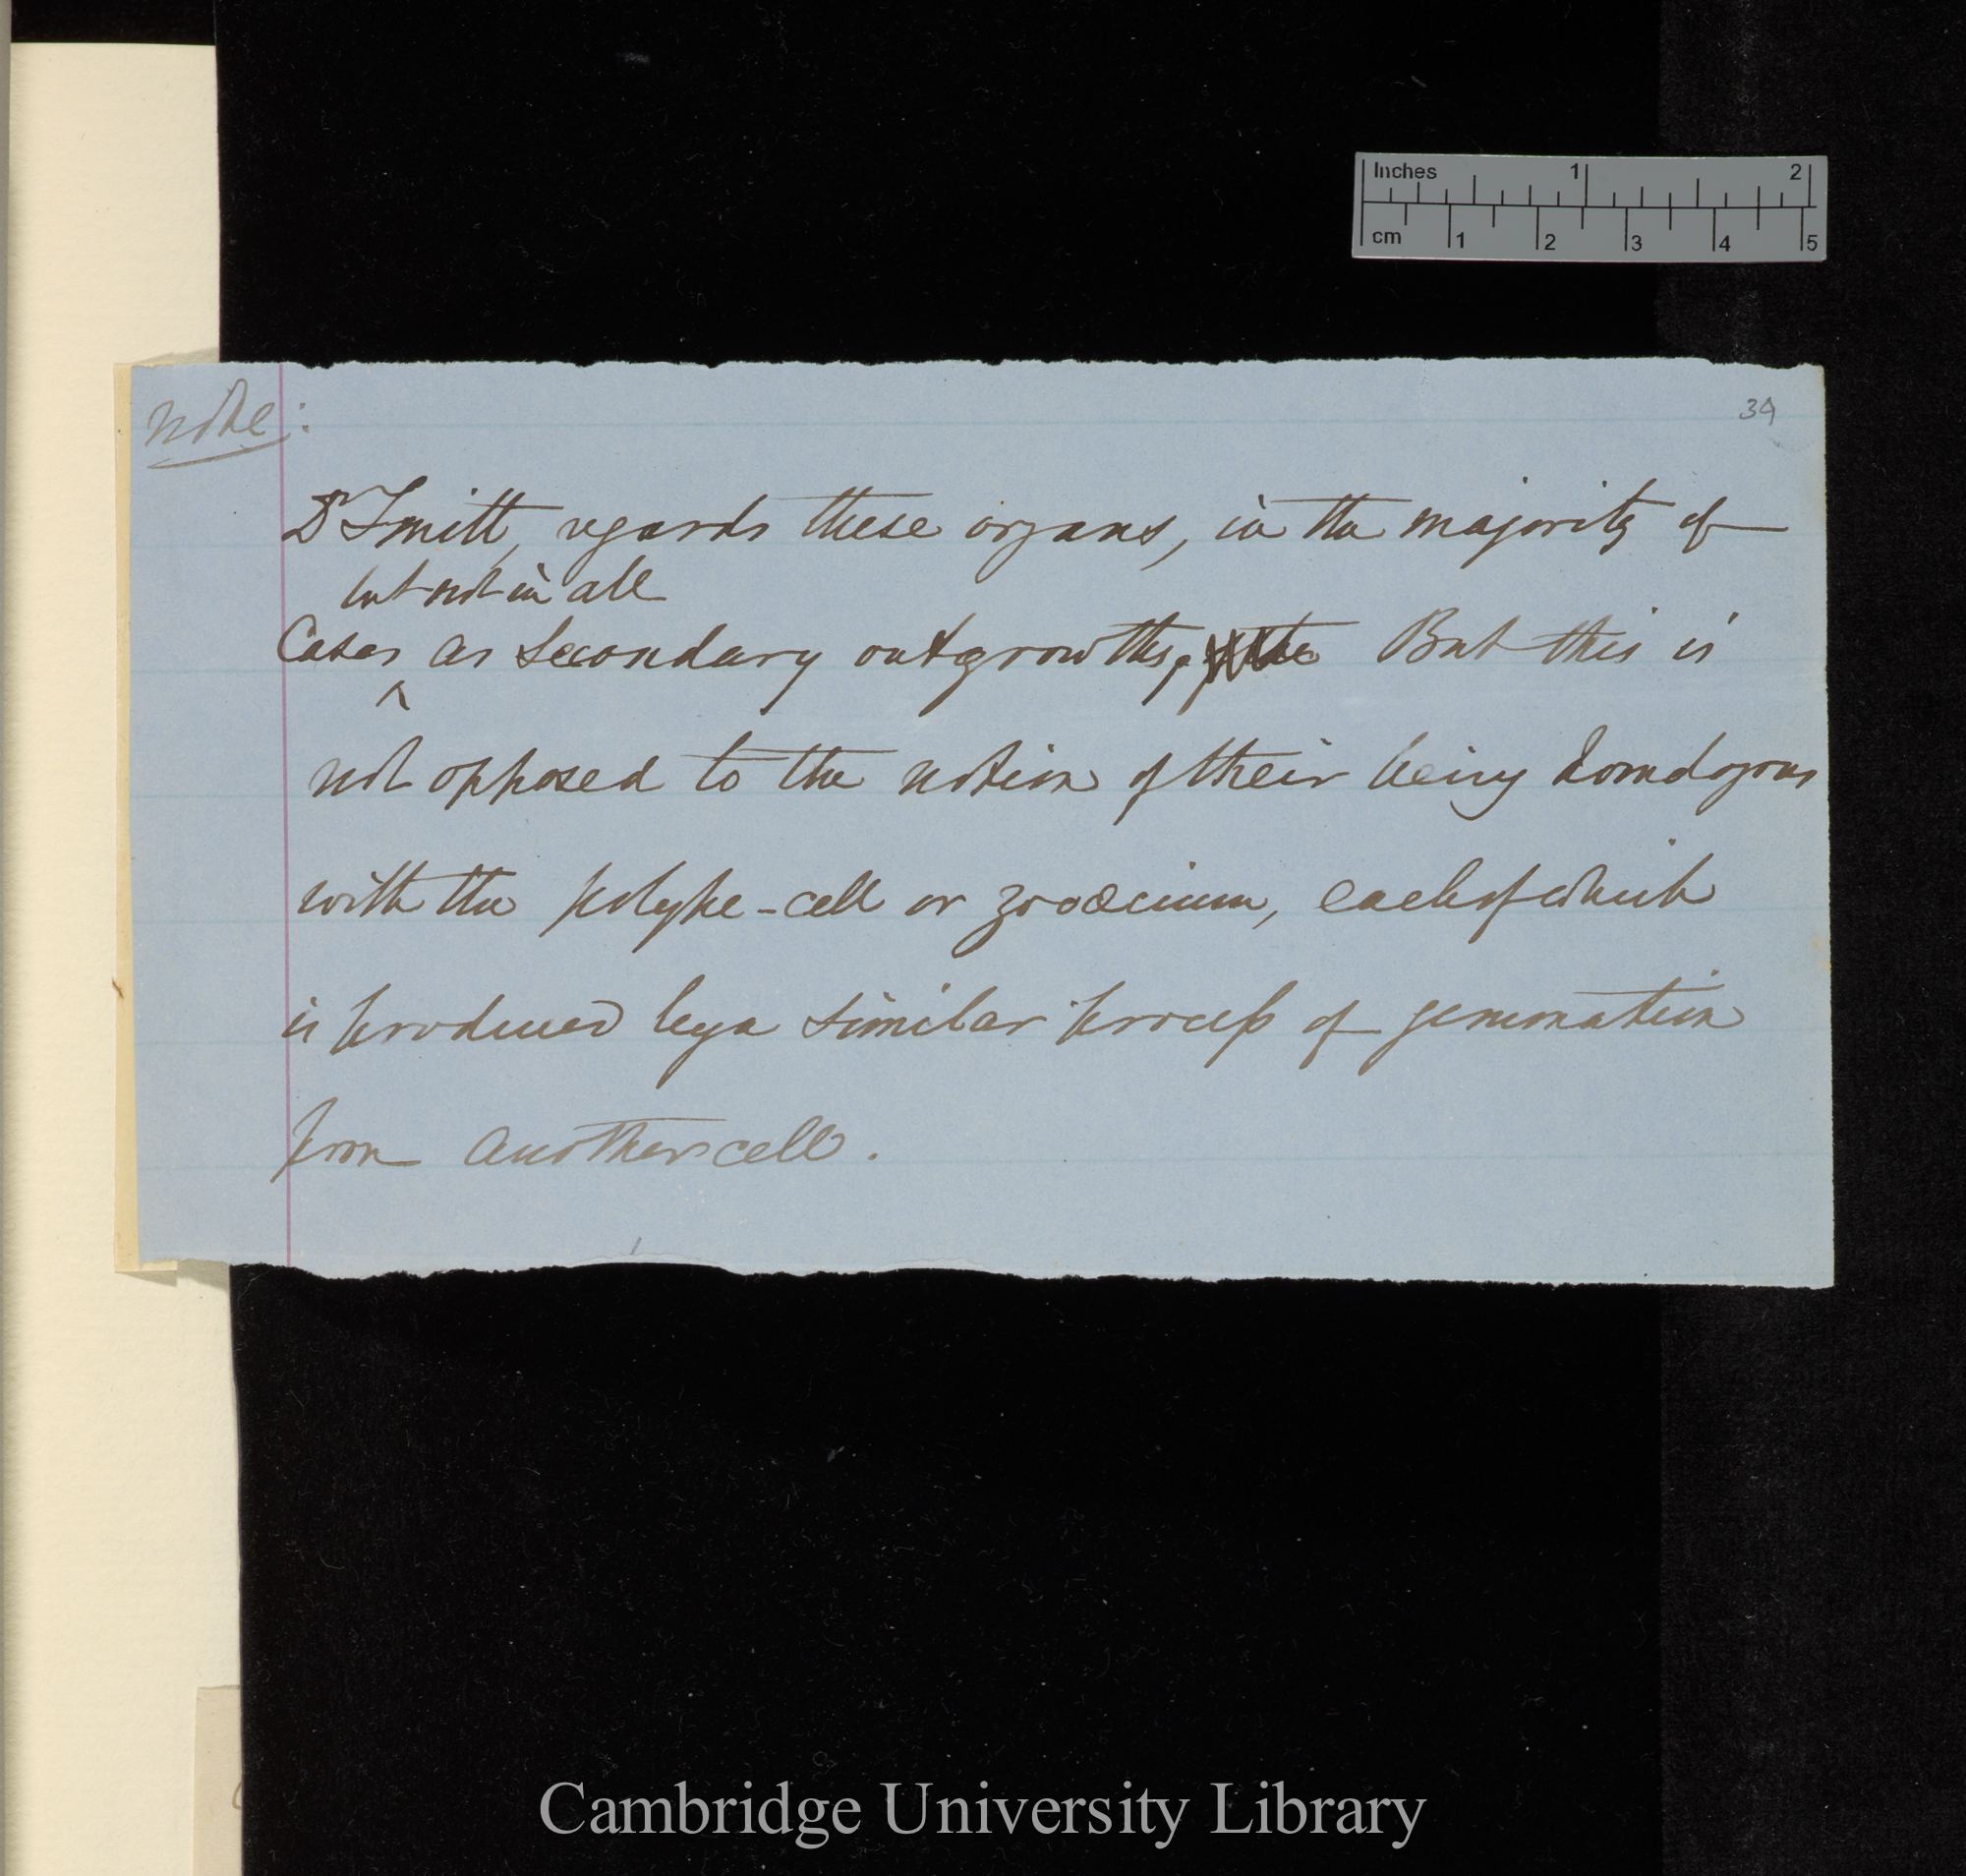 Inches 1 2
cm 1 2 3 4 5
note:
39
Dr Smitt, regards these organs, in the majority of
but not in all
Cases ^ as secondary outgrowths, But this is
not opposed to the notion of their being homologous
with the polype-cell or zooœcium, each of which
is produced by a similar process of gemmation
from another cell.
Cambridge University Library